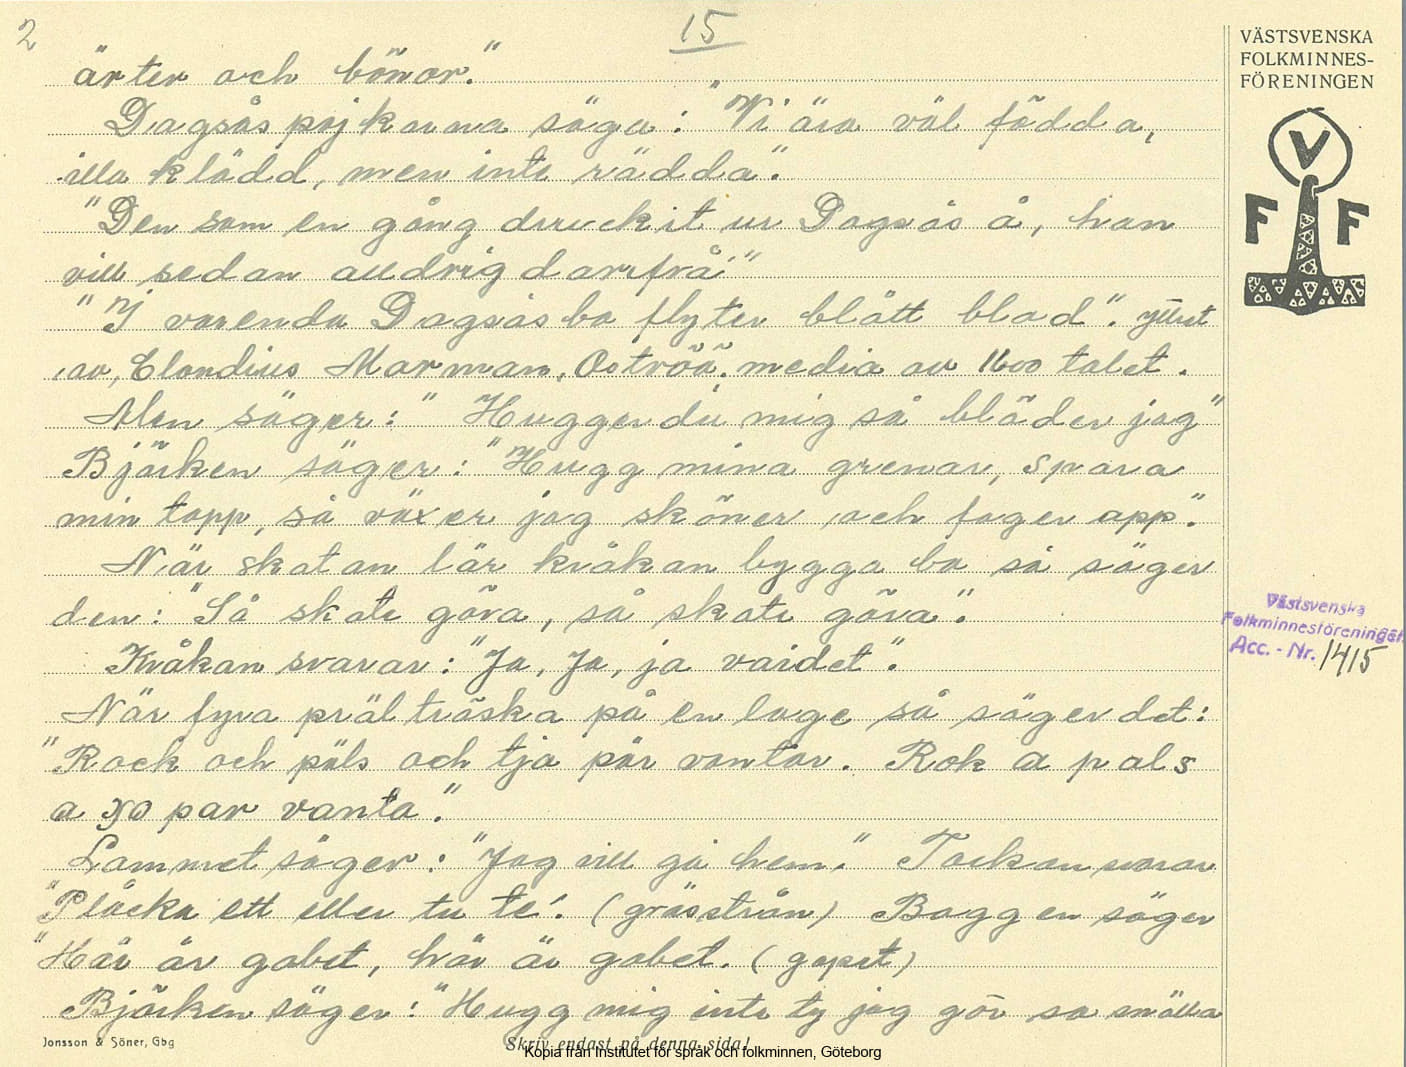 2
15
ärter och bönor."
Dagsås pojkarna säga: "Vi äro väl födda,
illa klädd, men inte rädda".
"Den som en gång druckit ur Dagsås å, han
vill sedan alldrig därifrå"
"I varenda Dagsåsbo flyter blått blod". yttrat
av, Claudius Marman, Oströö, media av 1600 talet.
Alen säger: "Hugger du mig så blöder jag"
Björken säger: "Hugg mina grenar, spara
min topp, så växer jag sköner och fager opp".
När skatan lär kråkan bygga bo så säger
den: "Så skate göra, så skate göra".
Kråkan svarar: "Ja, Ja, ja vaidet".
När fyra präl tröska på en loge så säger det:
"Rock och päls och tja pår vantar. Rok a pals
a 20 par vanta".
Lammet säger: "Jag vill gå hem." Tackan svarar
"Plåcka ett eller tu te". (grässtrån) Baggen säger
"Här är gabet, här är gabet. (gapet)
Björken säger: "Hugg mig inte ty jag gör så snälla
VÄSTSVENSKA
FOLKMINNES-
FÖRENINGEN
V
F F
Västsvenska
Folkminnesföreningen
Acc. - Nr. 1415
Jonsson & Söner, Gbg
Skriv endast på denna sida!
Kopia från Institutet för språk och folkminnen, Göteborg